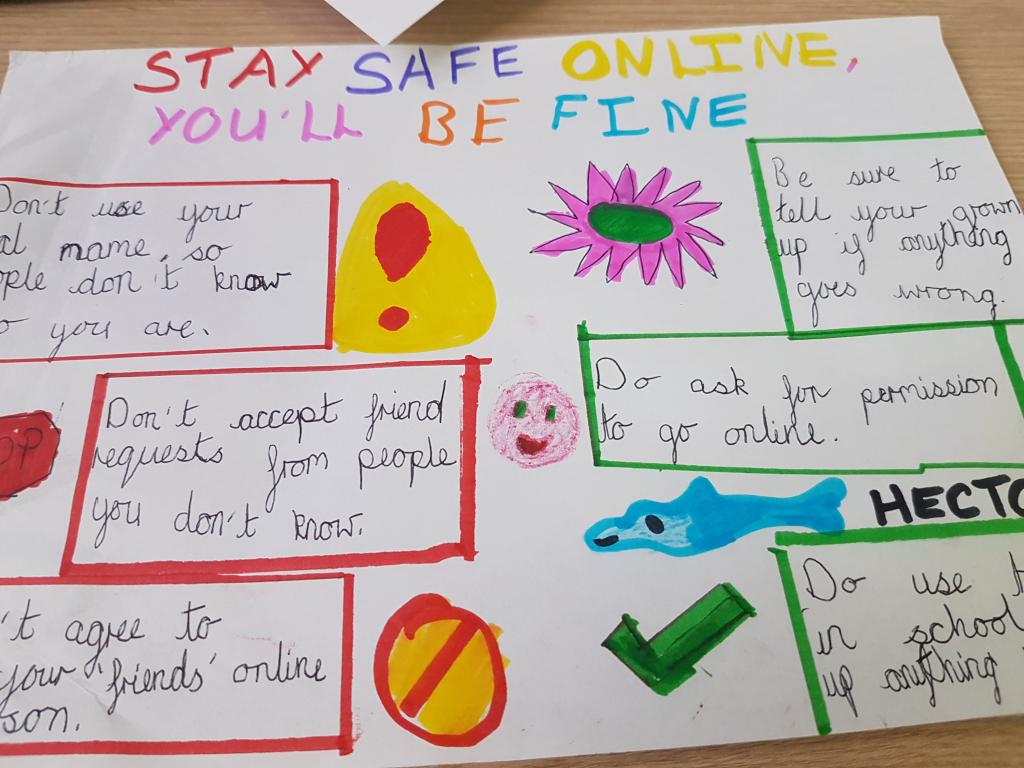 STAY SAFE ONLINE,
YOU'LL BE FINE
Don't use your
al mame, so
ople don't know
o you are.
Be sure to
tell your grown
up if anything
goes wrong.
Don't accept friend
requests from people
you don't know.
OP
Do ask for permission
to go online.
HECTO
't agree to
your 'friends' online
son.
Do use
in school
up anything